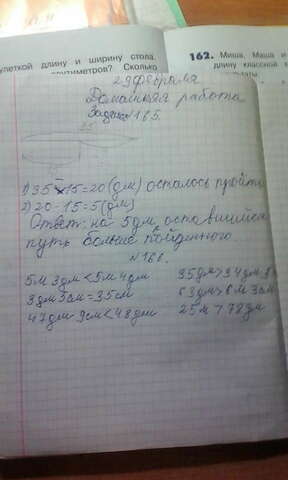 улеткой длину и ширину стола.
нтиметров? Сколько
162. Миша, Маша и
длину классной
29 февраля
Домашняя работа
Задача 165.
35
1) 35-15=20 (дм) осталось пройти
2) 20-15=5 (дм)
Ответ: на 5дм оставшийся
путь больше пойденного.
№166.
5м 3дм < 5м 4дм
3дм 5см = 35см
47дм 9см < 48дм
35дм > 34дм
63дм > 6м 3см
25м > 78дм